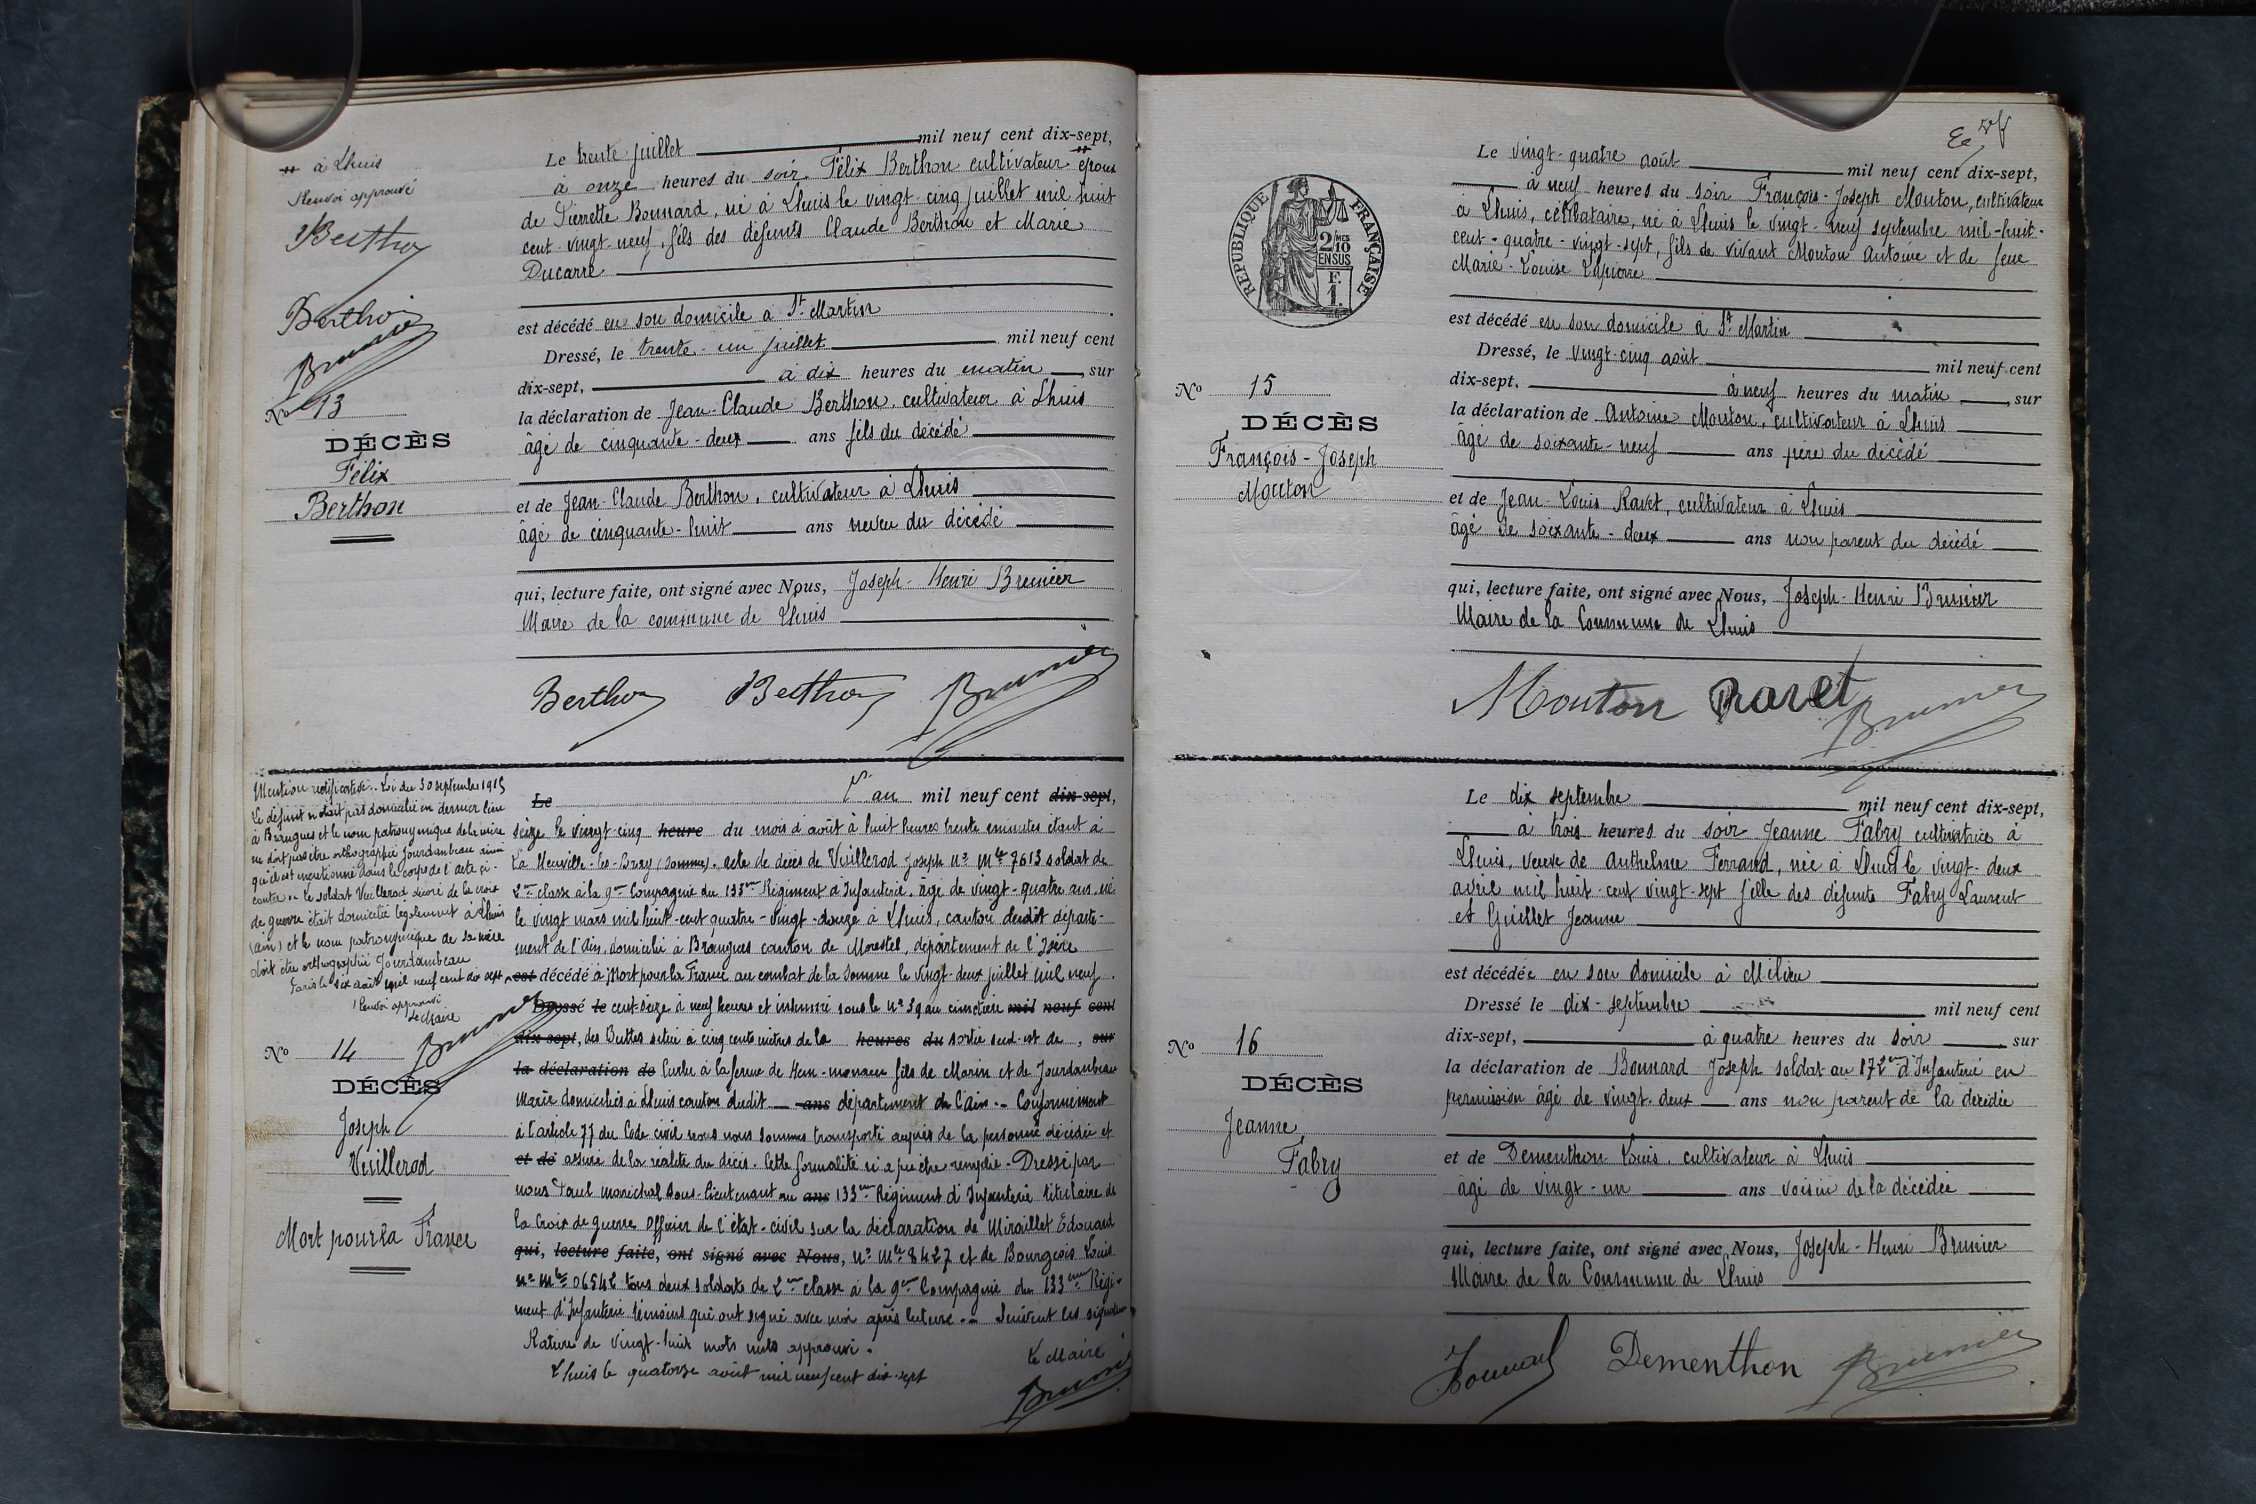 à Lhuis
Renvoi approuvé
Berthon
Berthon
Brunier
No 13
DÉCÈS
Félix
Berthon
Le trente juillet mil neuf cent dix-sept,
à onze heures du soir Félix Berthon cultivateur époux
de Pierrette Bonnard, né à Lhuis le vingt-cinq juillet mil huit
cent vingt-neuf, fils des défunts Claude Berthon et Marie
Ducarre
est décédé en son domicile à St Martin
Dressé, le trente-un juillet mil neuf cent
dix-sept, à dix heures du matin, sur
la déclaration de Jean-Claude Berthon, cultivateur à Lhuis
âgé de cinquante-deux ans fils du décédé
et de Jean-Claude Berthon, cultivateur à Lhuis
âgé de cinquante-huit ans neveu du décédé
qui, lecture faite, ont signé avec Nous, Joseph-Henri Brunier
Maire de la commune de Lhuis
Berthon Berthon Brunier
Mention rectificative. Loi du 30 septembre 1915
Le défunt n'était pas domicilié en dernier lieu
à Brangues et le nom patronymique de la mère
ne doit pas être orthographié Jourdanbeau ainsi
qu'il est mentionné dans le corps de l'acte ci-
contre. Le soldat Vuillerod décoré de la croix
de guerre était domicilié légalement à Lhuis
(Ain) et le nom patronymique de sa mère
doit être orthographié Jourdambeau
Paris le six août mil neuf cent dix sept
Renvoi approuvé
Le Maire
Brunier
No 14
DÉCÈS
Joseph
Vuillerod
Mort pour la France
Le L'an mil neuf cent dix-sept,
seize le vingt cinq heure du mois d'août à huit heures trente minutes étant à
La Neuville-les-Bray (Somme). acte de décès de Vuillerod Joseph No Mle 7613 soldat de
2me classe à la 9me Compagnie du 133me Régiment d'Infanterie, âgé de vingt-quatre ans, né
le vingt mars mil huit-cent quatre-vingt-douze à Lhuis, canton dudit départe-
ment de l'Ain, domicilié à Brangues canton de Morestel, département de l'Isère
est décédé à Mort pour la France au combat de la Somme le vingt-deux juillet mil neuf
Dressé le cent-seize à neuf heures et inhumé sous le No 39 au cimetière mil neuf cent
dix-sept, des Buttes situé à cinq cents mètres de la heures du sortie sud-est de, sur
la déclaration de Curlu à la ferme de Hem-monacu fils de Marin et de Jourdanbeau
Marie domiciliés à Lhuis canton dudit ans département de l'Ain. Conformément
à l'article 77 du Code civil nous nous sommes transporté auprès de la personne décédée et
et de assuré de la réalité du décès. Cette formalité n'a pu être remplie. Dressé par
nous Paul Maréchal Sous-Lieutenant au ans 133me Régiment d'Infanterie titulaire de
la Croix de guerre Officier de l'état-civil sur la déclaration de Miraillet Edouard
qui, lecture faite, ont signé avec Nous, No Mle 8427 et de Bourgeois Louis
No Mle 06542 tous deux soldats de 2me classe à la 9me Compagnie du 133me Régi-
ment d'Infanterie témoins qui ont signé avec moi après lecture. Suivent les signatures
Rature de vingt-huit mots nuls approuvé.
Lhuis le quatorze août mil neuf cent dix-sept
Le Maire
Brunier
RÉPUBLIQUE FRANÇAISE
2/10MES
EN SUS
F.
1.
No 15
DÉCÈS
François-Joseph
Mouton
Le vingt-quatre août mil neuf cent dix-sept,
à neuf heures du soir François-Joseph Mouton, cultivateur
à Lhuis, célibataire, né à Lhuis le vingt-neuf septembre mil-huit-
cent-quatre-vingt-sept, fils de vivant Mouton Antoine et de feue
Marie-Louise Lapierre
est décédé en son domicile à St Martin
Dressé, le vingt-cinq août mil neuf cent
dix-sept, à neuf heures du matin, sur
la déclaration de Antoine Mouton, cultivateur à Lhuis
âgé de soixante-neuf ans père du décédé
et de Jean-Louis Ravet, cultivateur à Lhuis
âgé de soixante-deux ans non parent du décédé
qui, lecture faite, ont signé avec Nous, Joseph-Henri Brunier
Maire de la Commune de Lhuis
Mouton Ravet Brunier
No 16
DÉCÈS
Jeanne
Fabry
Le dix septembre mil neuf cent dix-sept,
à trois heures du soir Jeanne Fabry cultivatrice à
Lhuis, veuve de Anthelme Ferrand, née à Lhuis le vingt-deux
avril mil huit-cent vingt-sept fille des défunts Fabry Laurent
et Guillet Jeanne
est décédée en son domicile à Milieu
Dressé le dix-septembre mil neuf cent
dix-sept, à quatre heures du soir, sur
la déclaration de Bonnard Joseph soldat au 172me d'Infanterie en
permission âgé de vingt-deux ans non parent de la décédée
et de Dementhon Louis, cultivateur à Lhuis
âgé de vingt-un ans voisin de la décédée
qui, lecture faite, ont signé avec Nous, Joseph-Henri Brunier
Maire de la Commune de Lhuis
Bonnard Dementhon Brunier